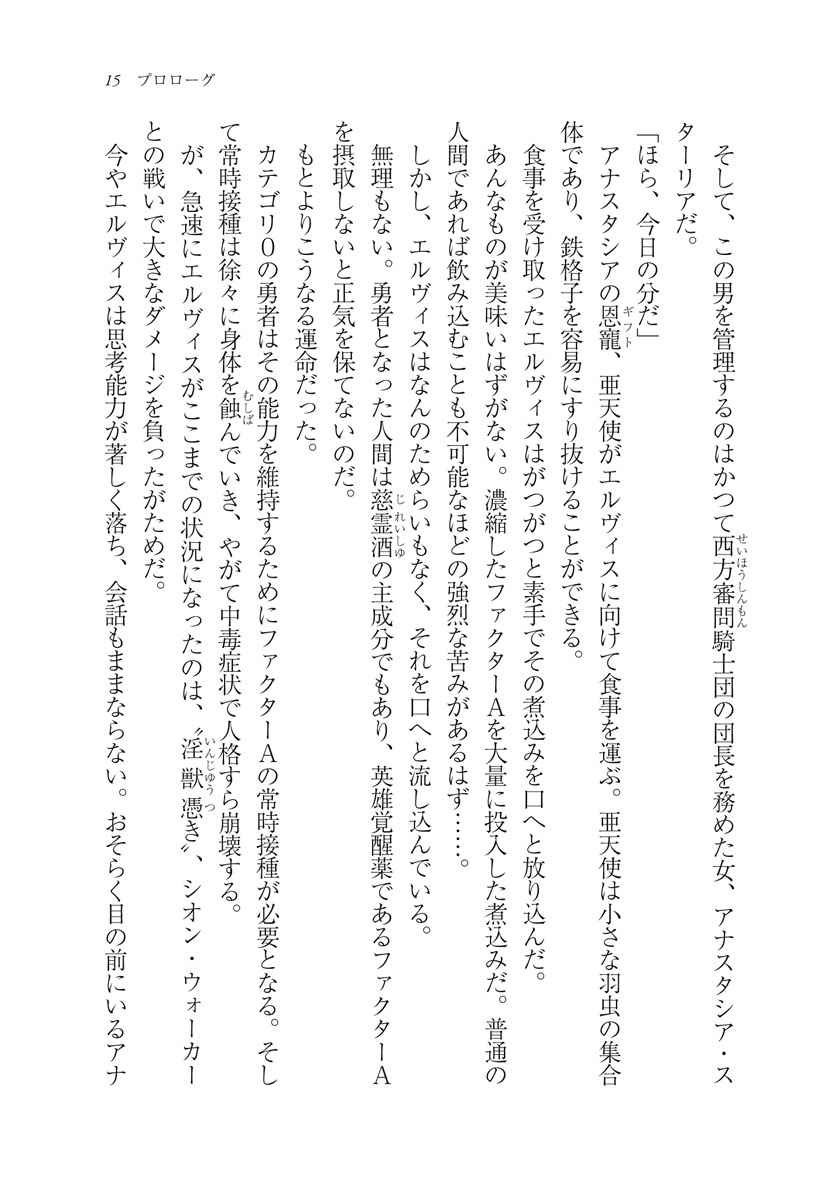 15 プロローグ
そして、この男を管理するのはかつて西方審問騎士団の団長を務めた女、アナスタシア・ス
ターリアだ。
「ほら、今日の分だ」
アナスタシアの恩寵、亜天使がエルヴィスに向けて食事を運ぶ。亜天使は小さな羽虫の集合
体であり、鉄格子を容易にすり抜けることができる。
食事を受け取ったエルヴィスはがつがつと素手でその煮込みを口へと放り込んだ。
あんなものが美味いはずがない。濃縮したファクターAを大量に投入した煮込みだ。普通の
人間であれば飲み込むことも不可能なほどの強烈な苦みがあるはず……。
しかし、エルヴィスはなんのためらいもなく、それを口へと流し込んでいる。
無理もない。勇者となった人間は慈霊酒の主成分でもあり、英雄覚醒薬であるファクターA
を摂取しないと正気を保てないのだ。
もとよりこうなる運命だった。
カテゴリ0の勇者はその能力を維持するためにファクターAの常時接種が必要となる。そし
て常時接種は徐々に身体を蝕んでいき、やがて中毒症状で人格すら崩壊する。
が、急速にエルヴィスがここまでの状況になったのは、〝淫獣憑き〟、シオン・ウォーカー
との戦いで大きなダメージを負ったがためだ。
今やエルヴィスは思考能力が著しく落ち、会話もままならない。おそらく目の前にいるアナ
せいほうしんもん
ギフト
じれいしゅ
むしば
いんじゅうつ